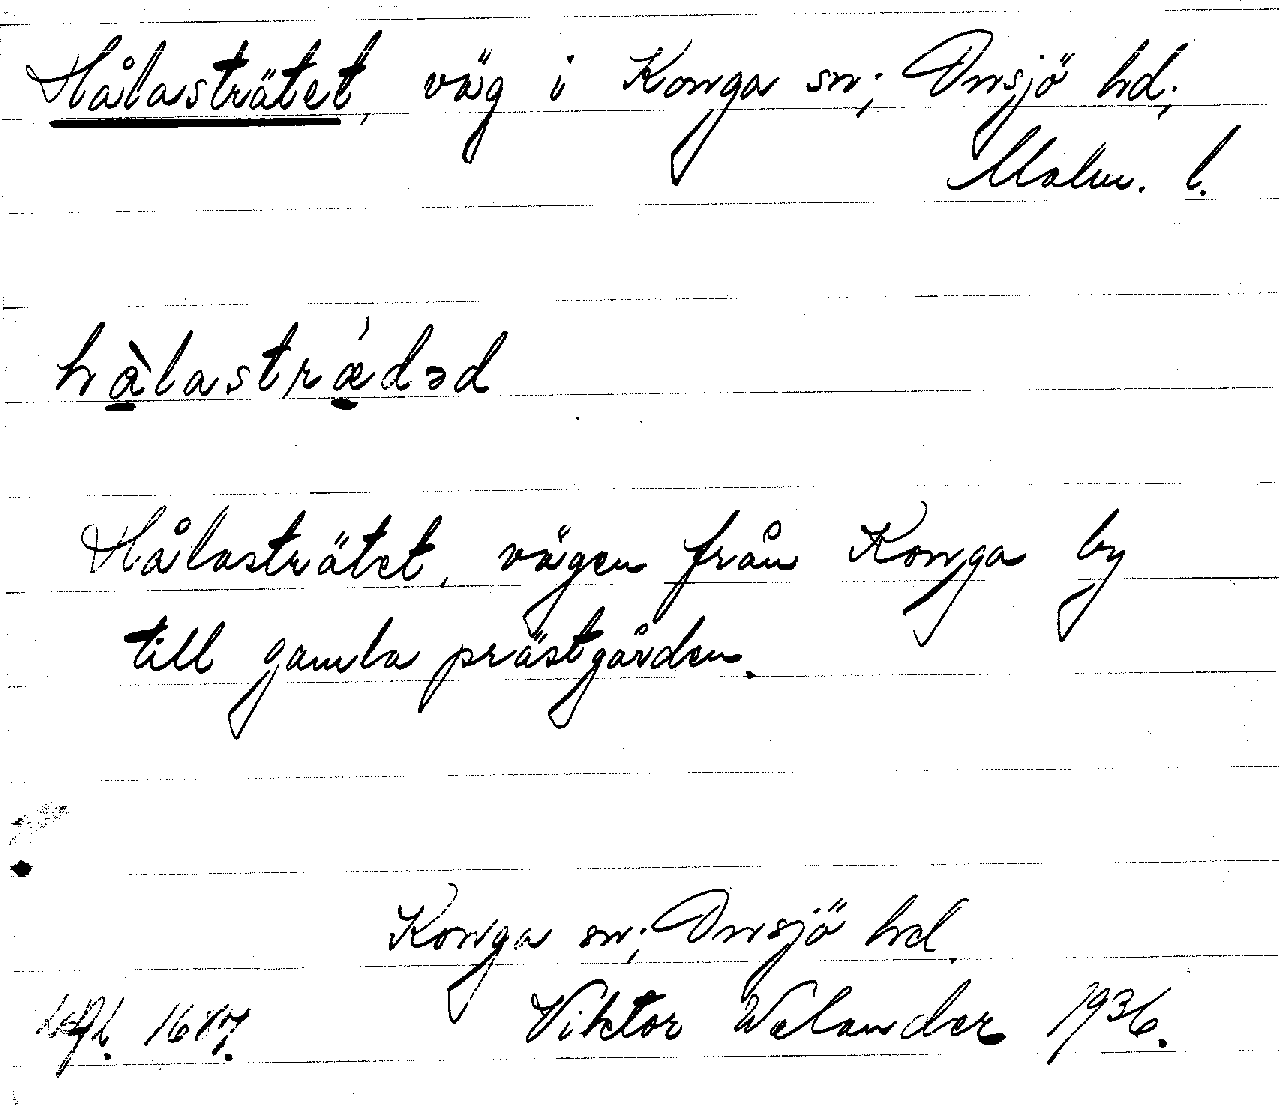 Hålasträtet, väg i Konga sn; Onsjö hd;
Malm. l.
hàlastrǽdəd
Hålasträtet, vägen från Konga by
till gamla prästgården.
Konga sn; Onsjö hd.
1687. Viktor Welander 1936.